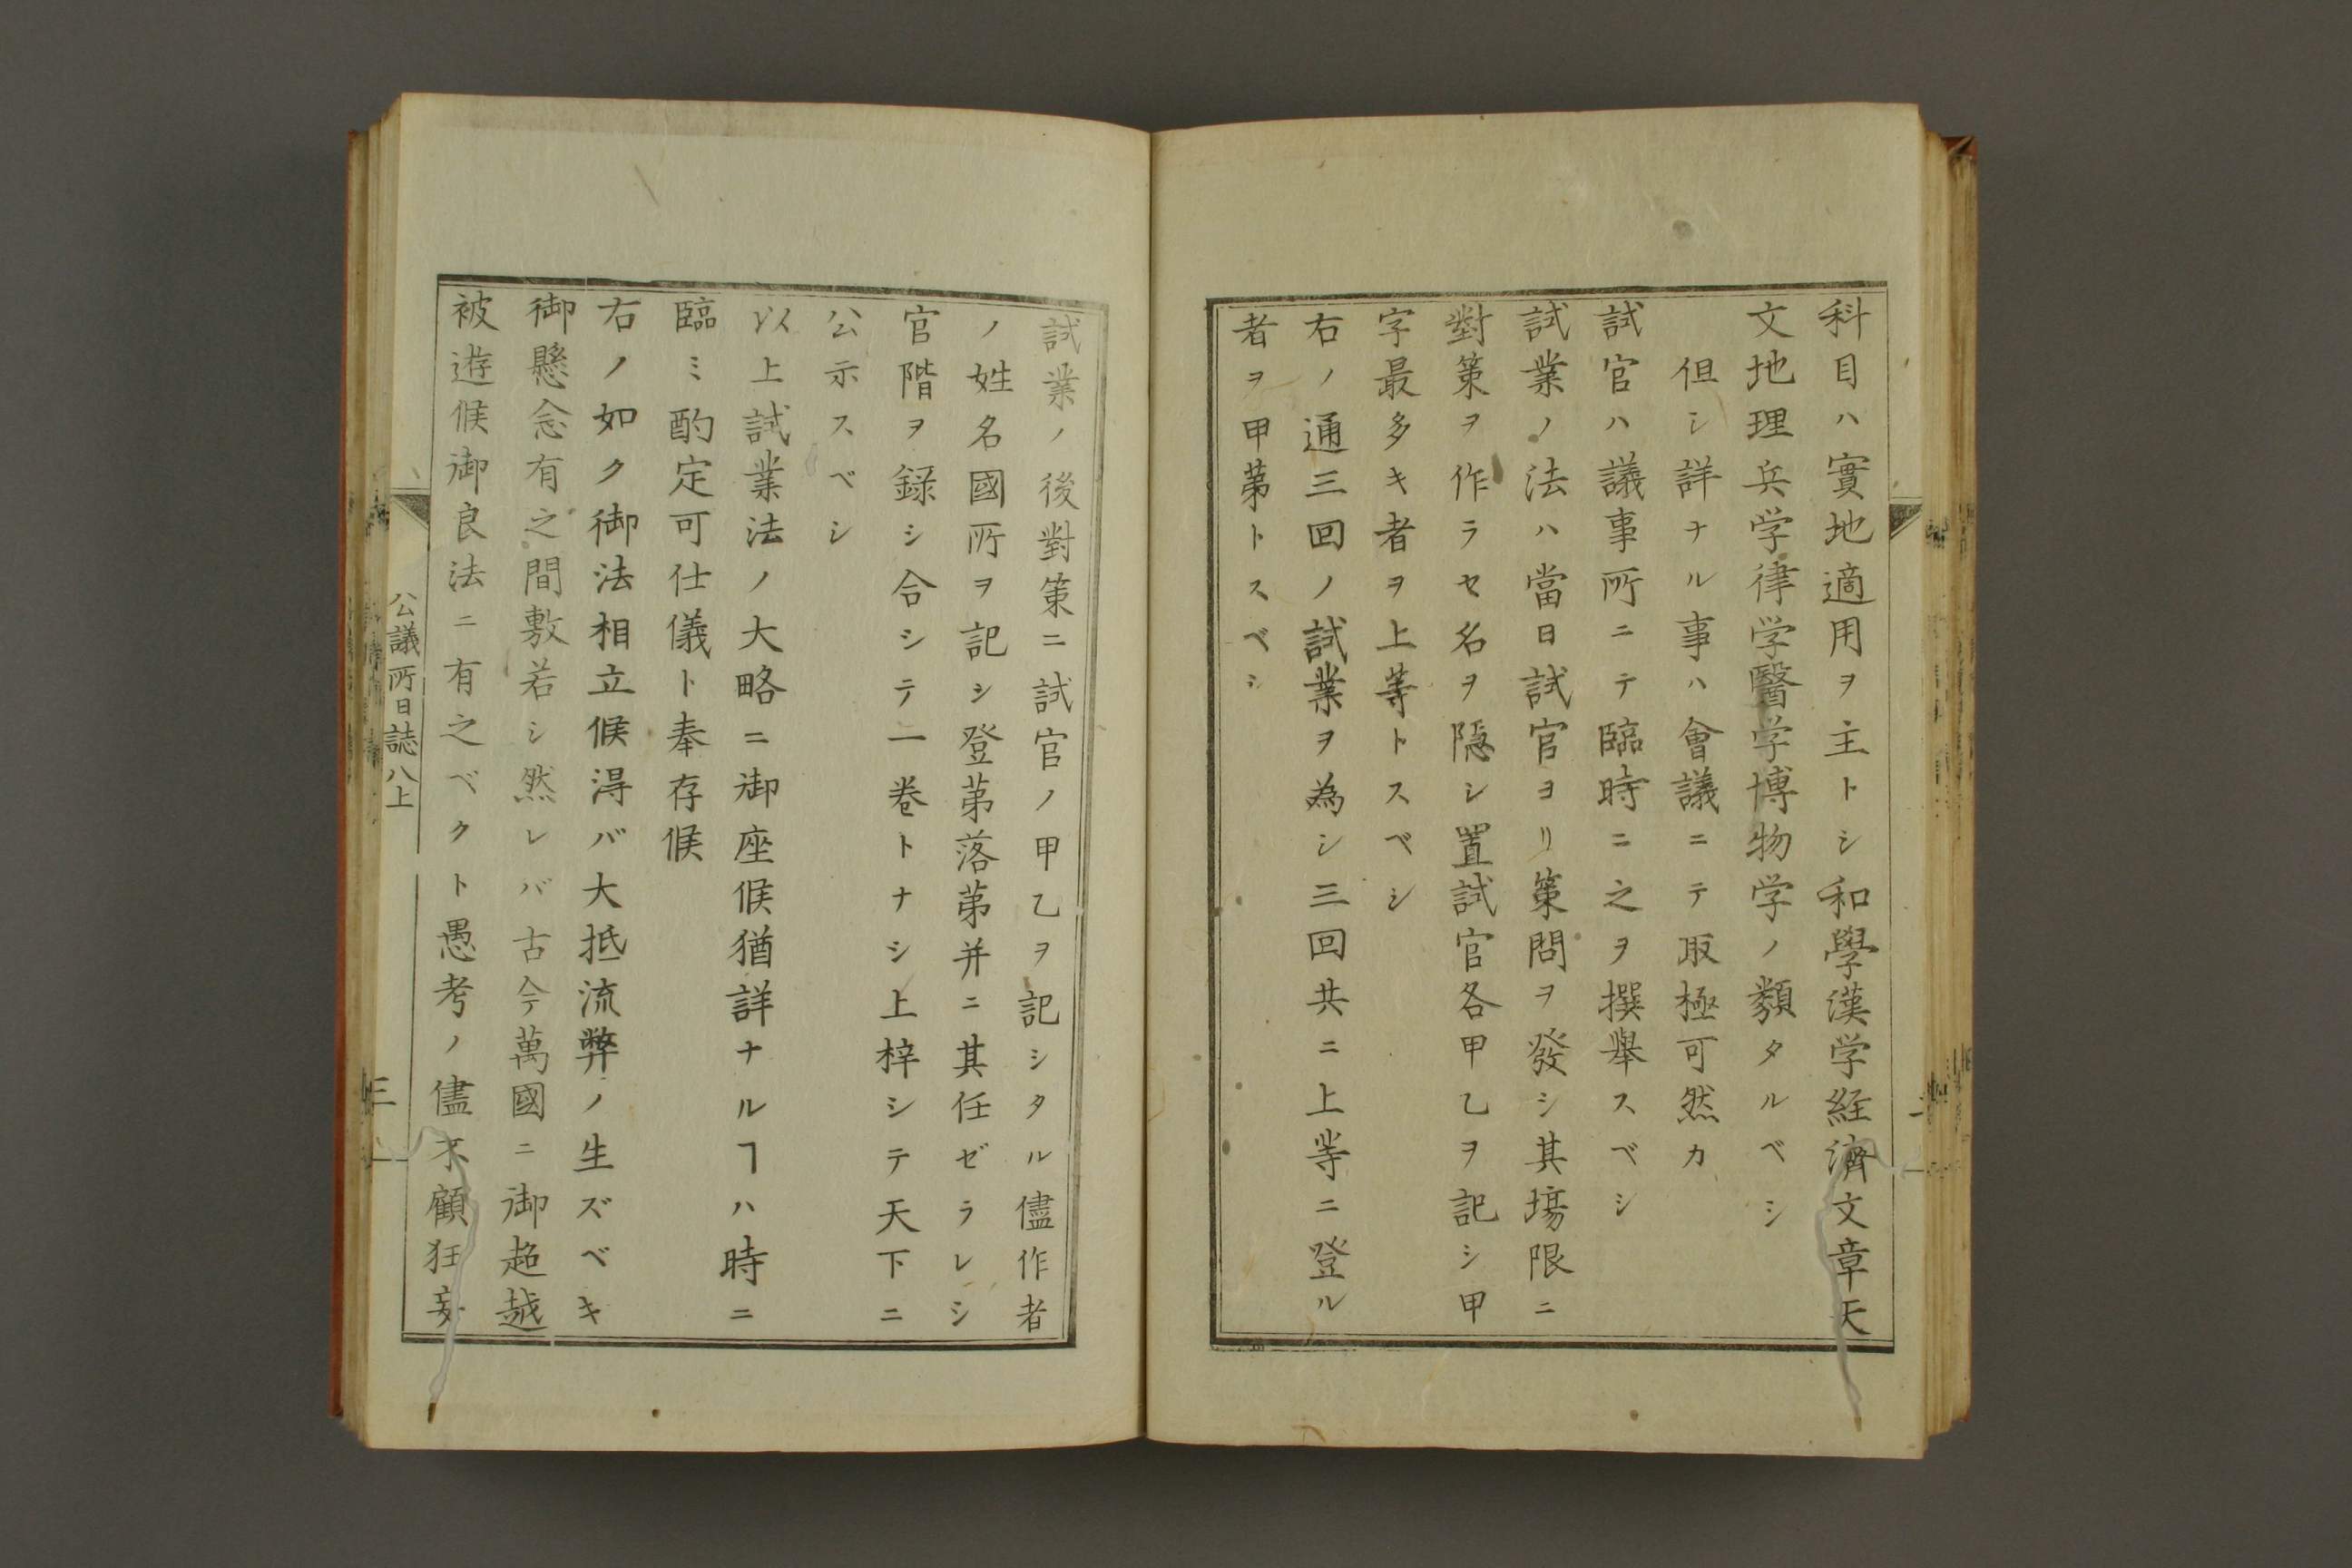 科目ハ實地適用ヲ主トシ和學漢学経濟文章天
文地理兵学律学醫学博物学ノ類タルベシ
但シ詳ナル事ハ會議ニテ取極可然カ
試官ハ議事所ニテ臨時ニ之ヲ撰舉スベシ
試業ノ法ハ當日試官ヨリ策問ヲ發シ其塲限ニ
對策ヲ作ラセ名ヲ隠シ置試官各甲乙ヲ記シ甲
字最多キ者ヲ上等トスベシ
右ノ通三回ノ試業ヲ為シ三回共ニ上等ニ登ル
者ヲ甲苐トスベシ
試業ノ後對策ニ試官ノ甲乙ヲ記シタル儘作者
ノ姓名國所ヲ記シ登苐落苐并ニ其任ゼラレシ
官階ヲ録シ合シテ一巻トナシ上梓シテ天下ニ
公示スベシ
以上試業法ノ大略ニ御座候猶詳ナルヿハ時ニ
臨ミ酌定可仕儀ト奉存候
右ノ如ク御法相立候淂バ大抵流弊ノ生ズベキ
御懸念有之間敷若シ然レバ古今萬國ニ御超越
被遊候御良法ニ有之ベクト愚考ノ儘不顧狂妄
公議所日誌八上
三